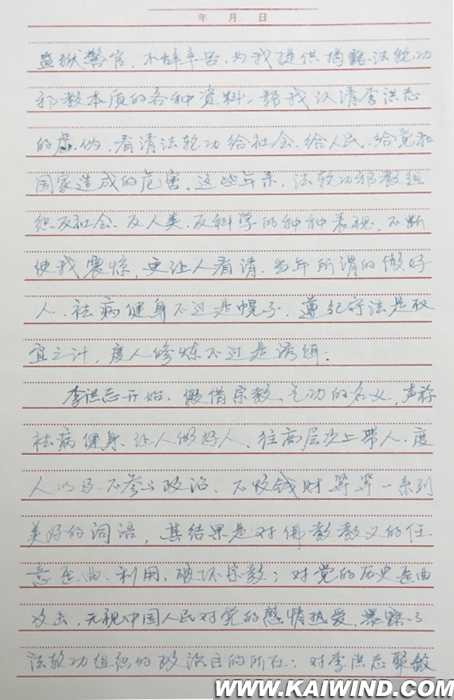 年 月 日
监狱警官，不辞辛苦，为我提供揭露法轮功
邪教本质的各种资料，帮我认清李洪志
的虚伪，看清法轮功给社会、给人民、给党和
国家造成的危害。这些年来，法轮功邪教组
织反社会、反人类、反科学的种种表现，不断
使我震惊，更让人看清，当年所谓的做好
人、祛病健身不过是幌子，遵纪守法是权
宜之计，度人修炼不过是诱饵。
李洪志开始，假借宗教、气功的名义，声称
祛病健身、让人做好人、往高层次上带人、度
人以及不参与政治、不收钱财等等一系列
美好的词语，其结果是对佛教教义的任
意歪曲、利用，破坏宗教；对党的历史歪曲
攻击，无视中国人民对党的感情热爱，暴露了
法轮功组织的政治目的所在；对李洪志聚敛
WWW.KAIWIND.COM